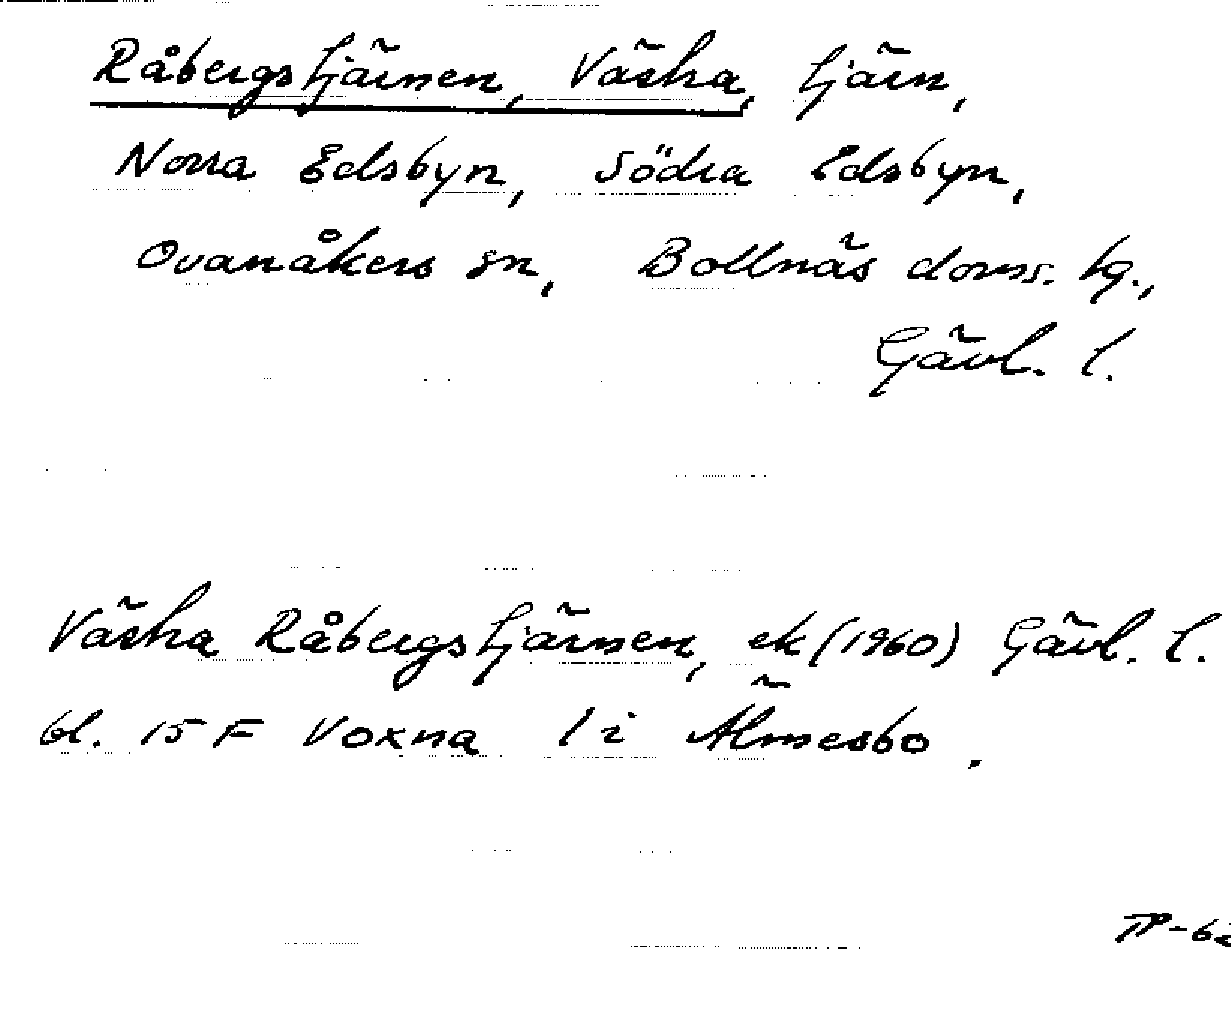 Råbergstjärnen, Västra, tjärn,
Norra Edsbyn, Södra Edsbyn,
Ovanåkers sn, Bollnäs doms. tg.,
Gävl. l.
Västra Råbergstjärnen, ek (1960) Gävl. l.
bl. 15 F Voxna 1 i Älmesbo.
TP-62